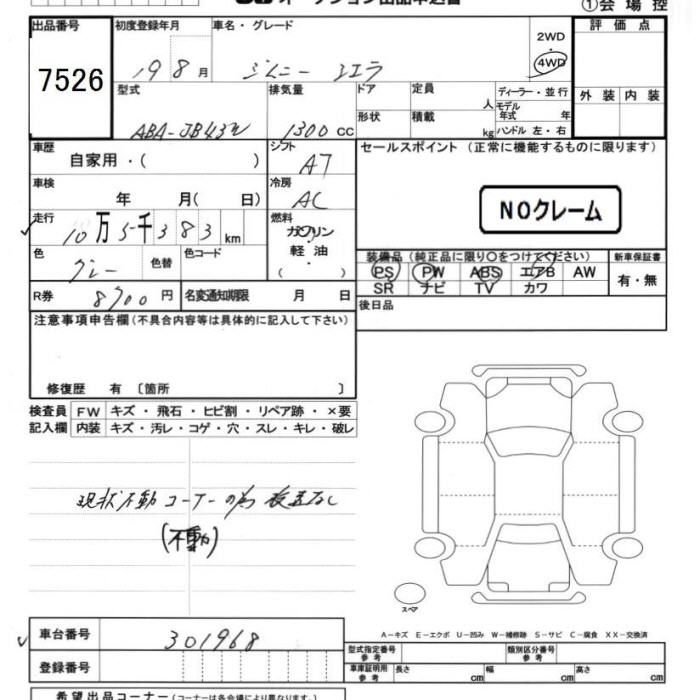 ①会 場 控
出品番号 初度登録年月 車名・グレード 評 価 点
2WD
7526 19 8 月 ジムニー シエラ 4WD
型式 排気量 ドア 定員 ディーラー・並行 外 装 内 装
人 モデル年式 年
ABA-JB43W 1300 CC 形状 積載 kg ハンドル 左・右
車歴 シフト セールスポイント (正常に機能するものに限ります)
自家用・( ) AT
車検 冷房
年 月( 日) AC NOクレーム
走行 燃料
10万5千383 km ガソリン
色 色替 色コード 軽 油 装備品 (純正品に限り○をつけてください) 新車保証書
グレー ・ PS PW ABS エアB AW 有・無
( ) SR ナビ TV カワ
R券 8700 円 名変通知期限 月 日 後日品
注意事項申告欄(不具合内容等は具体的に記入して下さい)
修復歴 有 〔箇所 〕
検査員 FW キズ ・ 飛石 ・ ヒビ割 ・ リペア跡 ・ ×要
記入欄 内装 キズ・汚レ・コゲ・穴・スレ・キレ・破レ
現状不動コーナーの為 検査なし
(不動)
スペア
A-キズ E-エクボ U-凹み W-補修跡 S-サビ C-腐食 XX-交換済
車台番号 301968 型式指定番号 参考 類別区分番号 参考
登録番号 車庫証明用 参考 長さ cm 幅 cm 高さ cm
希望出品コーナー(コーナーは各会場により異なります)